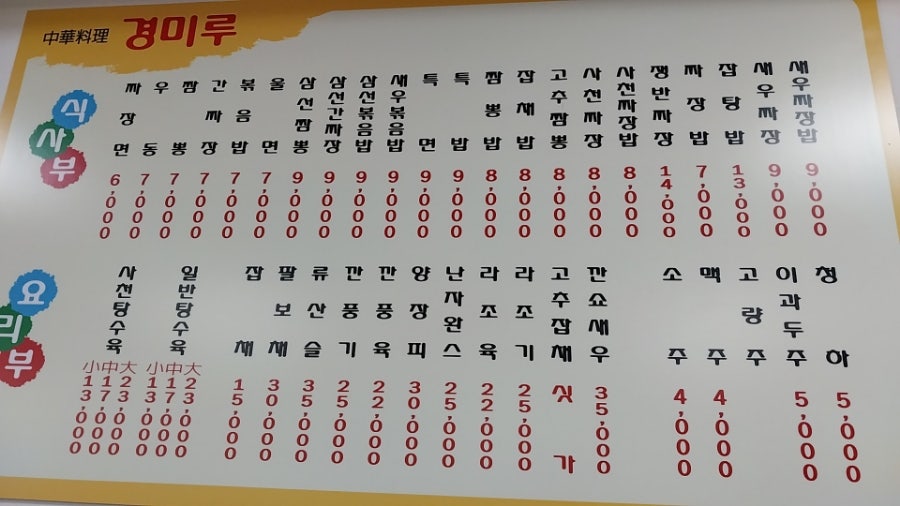 中華料理 경미루
식사부
짜장면 6,000
우동 7,000
짬뽕 7,000
간짜장 7,000
볶음밥 7,000
울면 7,000
삼선짬뽕 9,000
삼선간짜장 9,000
삼선볶음밥 9,000
새우볶음밥 9,000
특면 9,000
특밥 9,000
짬뽕밥 8,000
잡채밥 8,000
고추짬뽕 8,000
사천짜장 8,000
사천짜장밥 8,000
쟁반짜장 14,000
짜장밥 7,000
잡탕밥 13,000
새우짜장 9,000
새우짜장밥 9,000
요리부
사천탕수육 小13,000 中17,000 大23,000
일반탕수육 小13,000 中17,000 大23,000
잡채 15,000
팔보채 30,000
류산슬 35,000
깐풍기 25,000
깐풍육 22,000
양장피 30,000
난자완스 25,000
라조육 22,000
라조기 25,000
고추잡채 싯가
깐쇼새우 35,000
소주 4,000
맥주 4,000
고량주
이과두주 5,000
청하 5,000